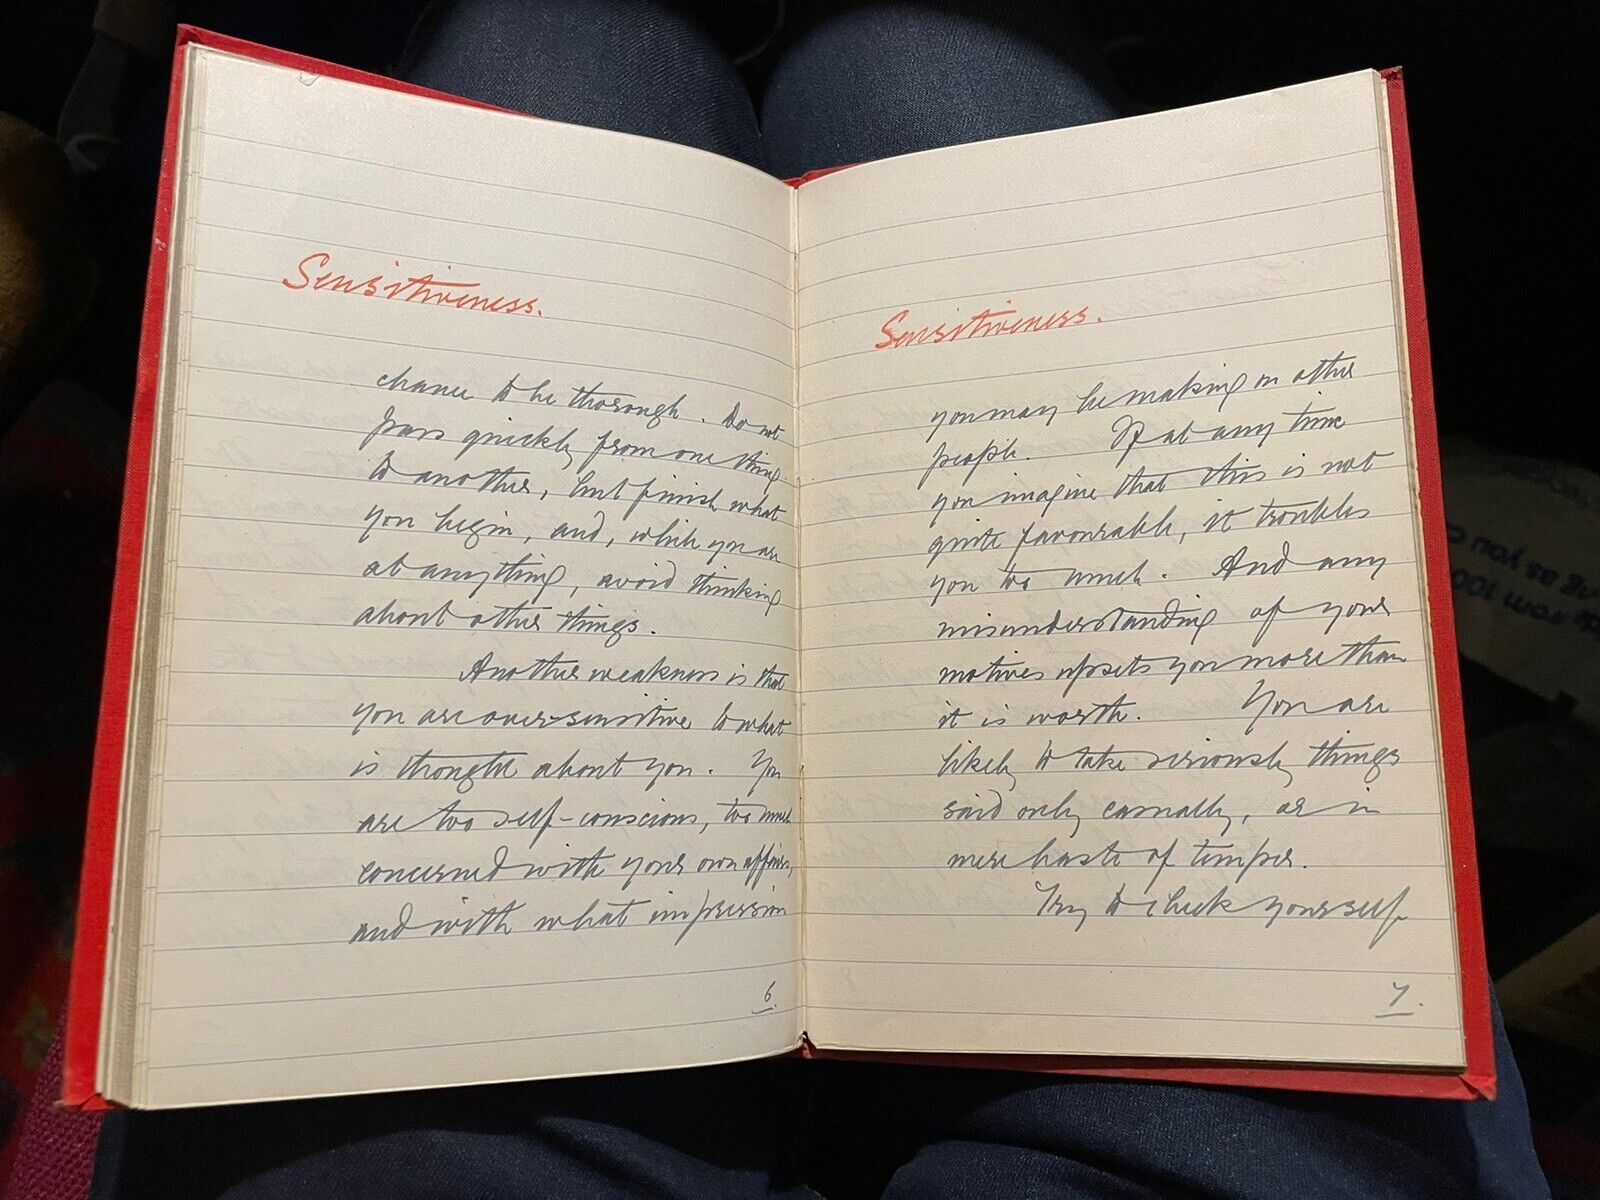 Sensitiveness.
chance to be thorough. Do not
pass quickly from one thing
to another, but finish what
you begin, and, while you are
at anything, avoid thinking
about other things.
Another weakness is that
you are over-sensitive to what
is thought about you. You
are too self-conscious, too much
concerned with your own affairs,
and with what impression
6.
Sensitiveness.
you may be making on other
people. If at any time
you imagine that this is not
quite favourable, it troubles
you too much. And any
misunderstanding of your
motives upsets you more than
it is worth. You are
likely to take seriously things
said only casually, or in
mere haste of temper.
Try to check yourself
7.